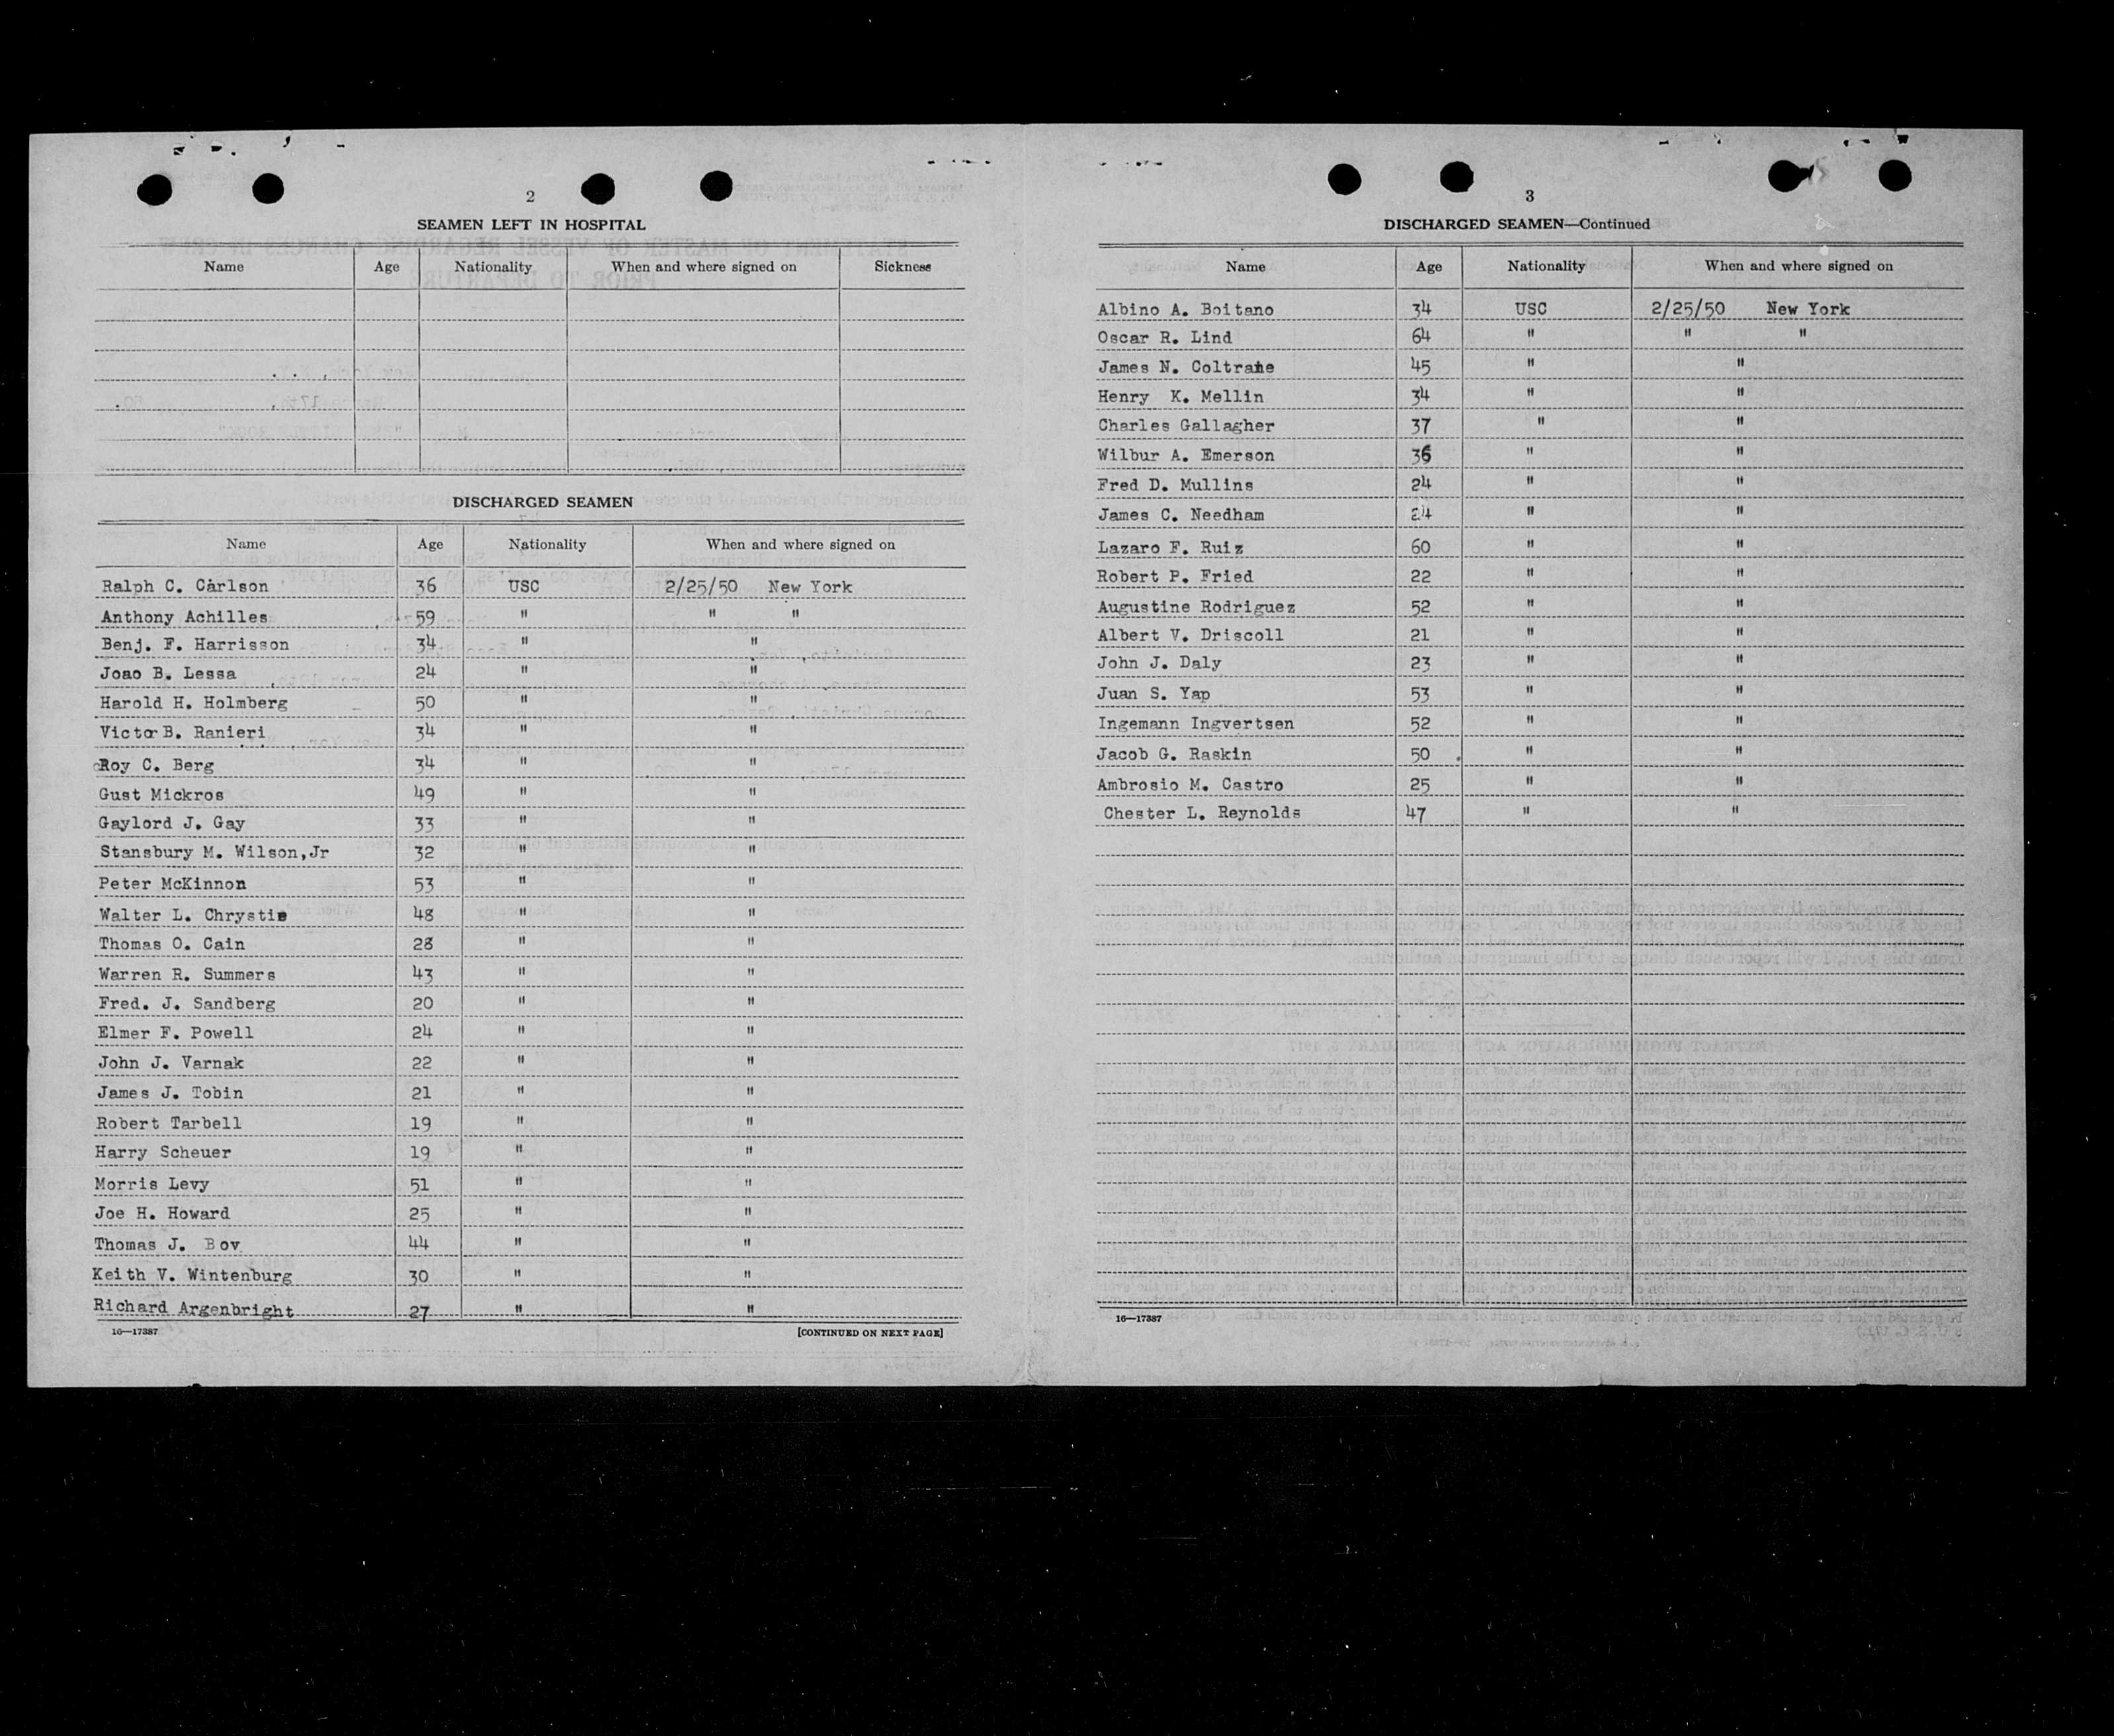 2
SEAMEN LEFT IN HOSPITAL
Name Age Nationality When and where signed on Sickness
DISCHARGED SEAMEN
Name Age Nationality When and where signed on
Ralph C. Carlson 36 USC 2/25/50 New York
Anthony Achilles 59 " " "
Benj. F. Harrisson 34 " "
Joao B. Lessa 24 " "
Harold H. Holmberg 50 " "
Victor B. Ranieri 34 " "
Roy C. Berg 34 " "
Gust Mickros 49 " "
Gaylord J. Gay 33 " "
Stansbury M. Wilson,Jr 32 " "
Peter McKinnon 53 " "
Walter L. Chrystie 48 " "
Thomas O. Cain 28 " "
Warren R. Summers 43 " "
Fred. J. Sandberg 20 " "
Elmer F. Powell 24 " "
John J. Varnak 22 " "
James J. Tobin 21 " "
Robert Tarbell 19 " "
Harry Scheuer 19 " "
Morris Levy 51 " "
Joe H. Howard 25 " "
Thomas J. Bov 44 " "
Keith V. Wintenburg 30 " "
Richard Argenbright 27 " "
16—17387 [CONTINUED ON NEXT PAGE]
3
DISCHARGED SEAMEN—Continued
Name Age Nationality When and where signed on
Albino A. Boitano 34 USC 2/25/50 New York
Oscar R. Lind 64 " " "
James N. Coltrane 45 " "
Henry K. Mellin 34 " "
Charles Gallagher 37 " "
Wilbur A. Emerson 36 " "
Fred D. Mullins 24 " "
James C. Needham 24 " "
Lazaro F. Ruiz 60 " "
Robert P. Fried 22 " "
Augustine Rodriguez 52 " "
Albert V. Driscoll 21 " "
John J. Daly 23 " "
Juan S. Yap 53 " "
Ingemann Ingvertsen 52 " "
Jacob G. Raskin 50 " "
Ambrosio M. Castro 25 " "
Chester L. Reynolds 47 " "
16—17387